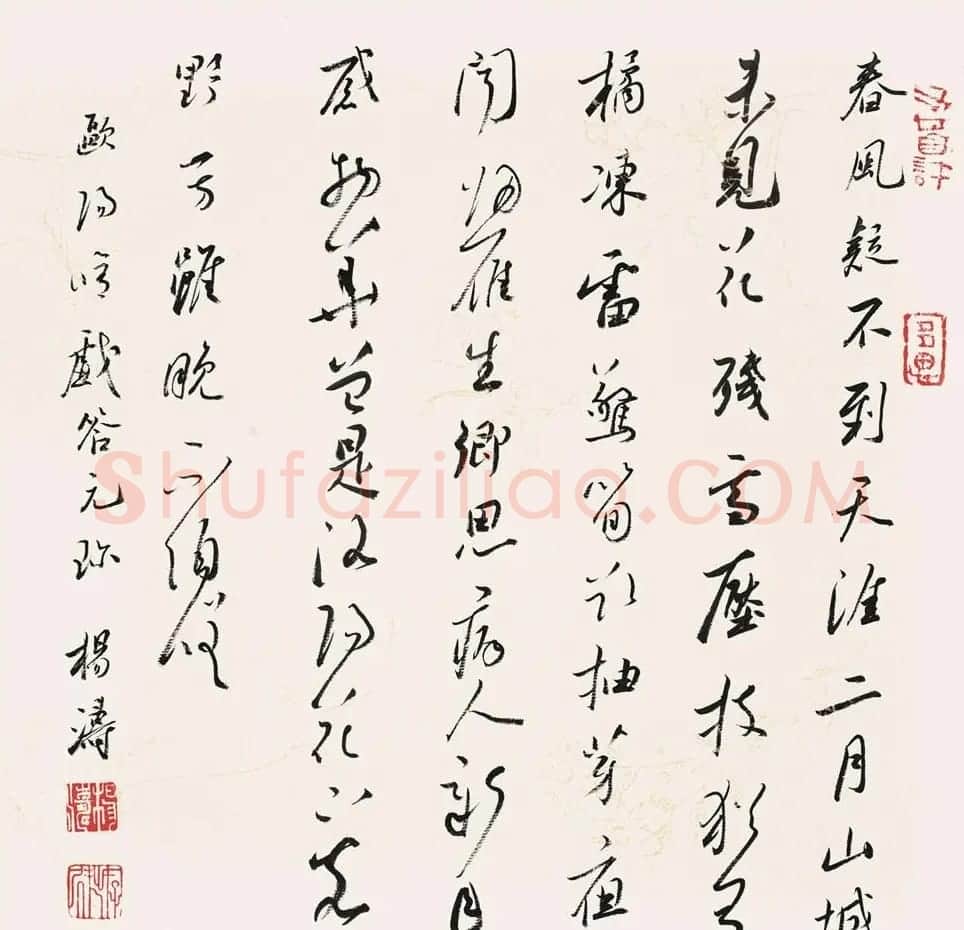 春風疑不到天涯二月山城
未見花殘雪壓枝猶有
橘凍雷驚筍欲抽芽夜
聞歸雁生鄉思病入新
感物華曾是洛陽花下客
野芳雖晚不須嗟
歐陽脩戲答元珍 楊濤
Shufaziliao.COM